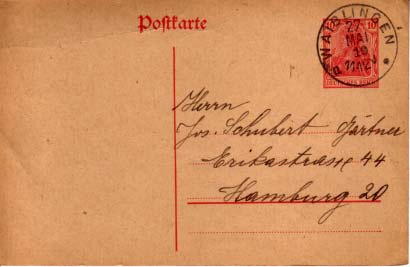 Postkarte
WAIBLINGEN
27
MAI
19
11-12V
10
DEUTSCHES REICH
Herrn
Jos. Schubert Gärtner
Erikastrasse 44
Hamburg 20